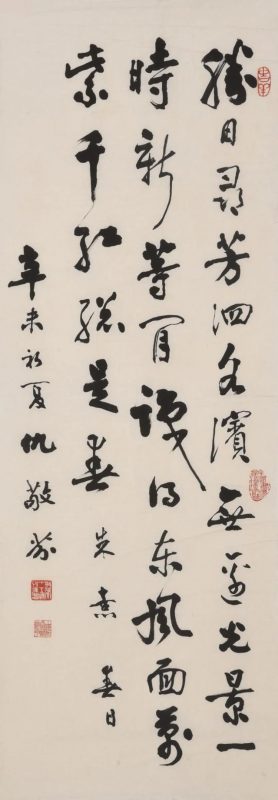 勝日尋芳泗水濱無邊光景一
時新等閒識得東風面萬
紫千紅總是春 朱熹 春日
辛未初夏仇敬芬